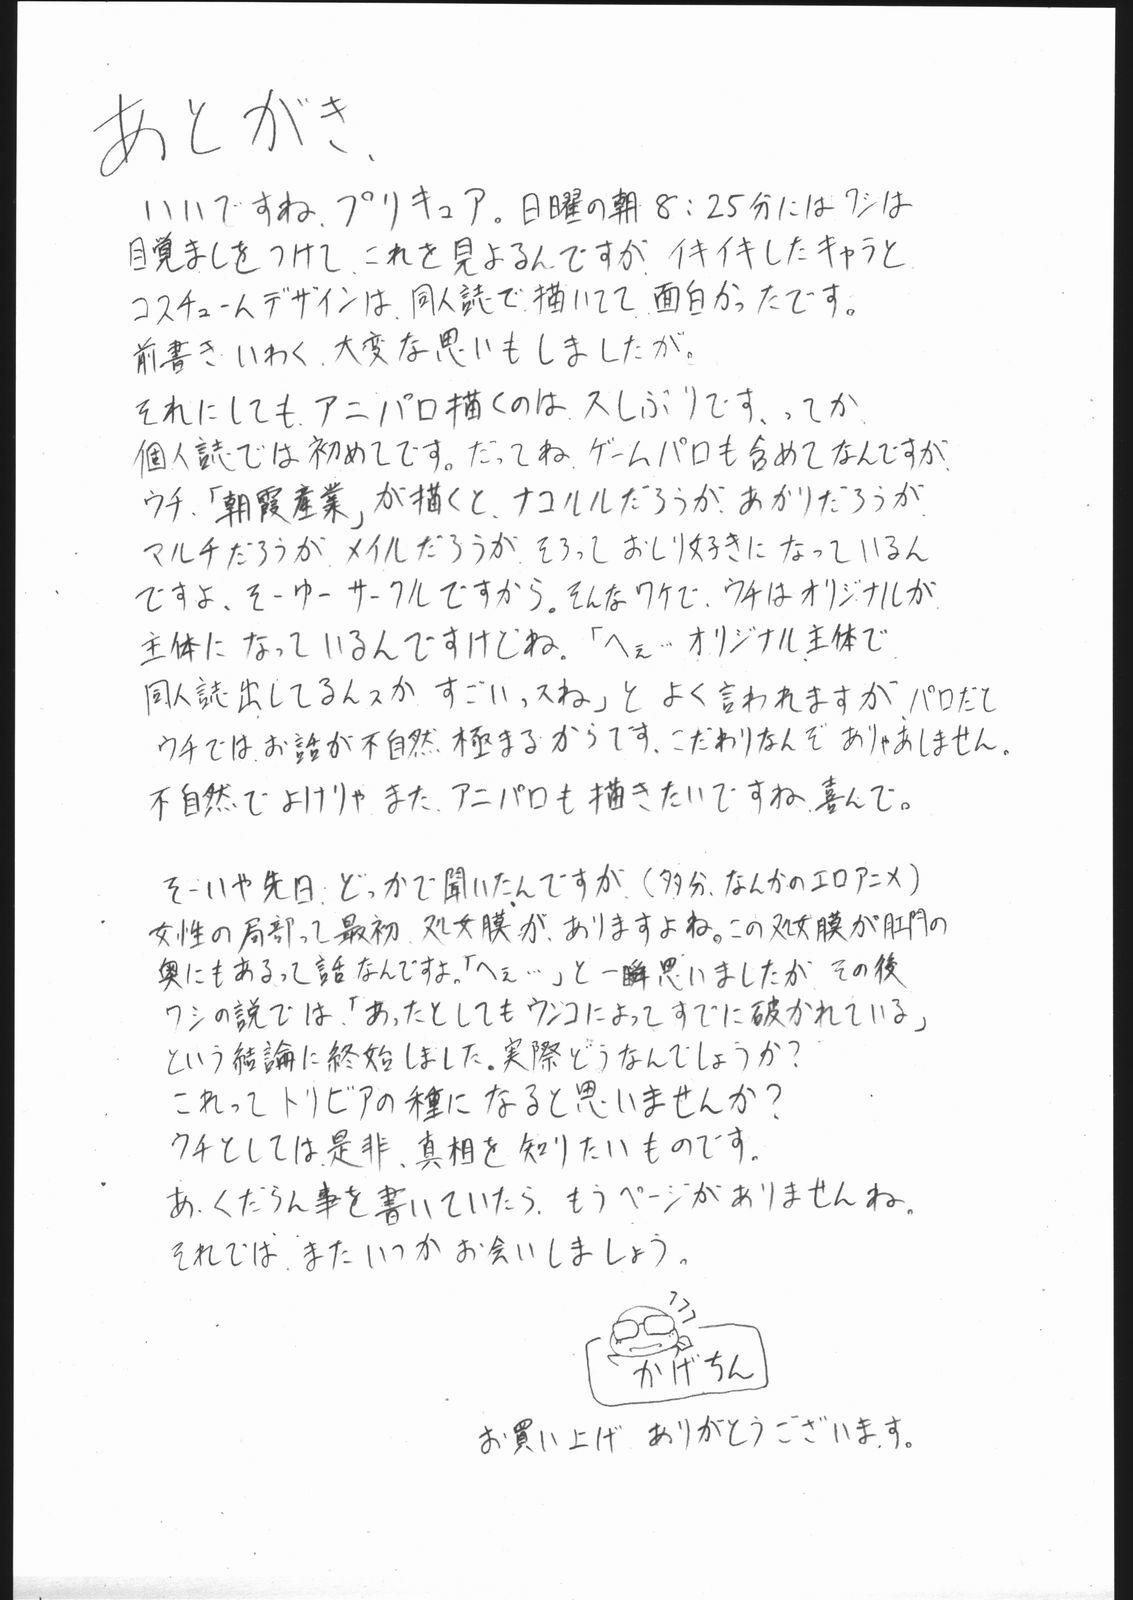 あとがき、
いいですね、プリキュア。日曜の朝8:25分にはワシは
目覚ましをつけて、これを見よるんですが、イキイキしたキャラと
コスチュームデザインは、同人誌で描いてて、面白かったです。
前書きいわく、大変な思いもしましたが。
それにしても、アニパロ描くのは久しぶりです、ってか、
個人誌では初めてです。だってね、ゲームパロも含めてなんですが、
ウチ、「朝霞産業」が描くと、ナコルルだろうが、あかりだろうが、
マルチだろうが、メイルだろうが、そろっておしり好きになっているん
ですよ、そーゆーサークルですから。そんなワケで、ウチはオリジナルが
主体になっているんですけどね。「へぇ…オリジナル主体で
同人誌出してるんスか、すごいっスね」とよく言われますが、パロだと
ウチでは、お話が不自然極まるからです、こだわりなんぞありゃあしません。
不自然でよけりゃまた、アニパロも描きたいですね、喜んで。
そーいや先日、どっかで聞いたんですが、(多分、なんかのエロアニメ)
女性の局部って最初、処女膜が、ありますよね。この処女膜が肛門の
奥にもあるって話なんですよ。「へぇ…」と一瞬思いましたが、その後
ワシの説では、「あったとしてもウンコによってすでに破かれている」
という結論に終始しました。実際どうなんでしょうか?
これってトリビアの種になると思いませんか?
ウチとしては是非、真相を知りたいものです。
あ、くだらん事を書いていたら、もうページがありませんね。
それでは、またいつかお会いしましょう。
かげちん
お買い上げ、ありがとうございます。